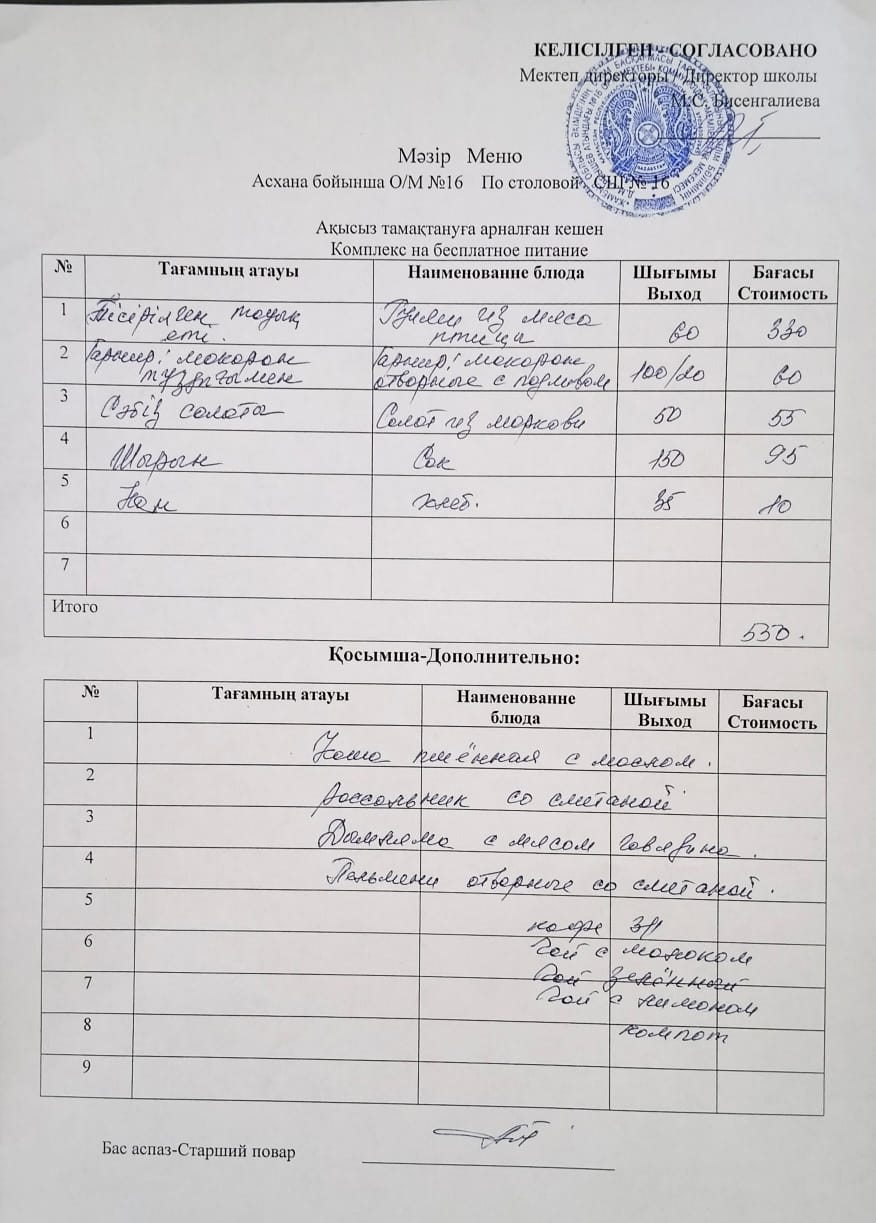 КЕЛІСІЛГЕН - СОГЛАСОВАНО
Мектеп директоры / Директор школы
М.С. Бисенгалиева
Мәзір Меню
Асхана бойынша О/М №16 По столовой СШ № 16
Ақысыз тамақтануға арналған кешен
Комплекс на бесплатное питание
№ Тағамның атауы Наименованне блюда Шығымы Выход Бағасы Стоимость
1 Пісірілген тауық еті. из мяса птицы 60 330
2 Гарнир: макарон тұздығымен Гарнир: макарон отворные с подливом 100/20 60
3 Сәбіз салаты Салат из моркови 50 55
4 Шырын Сок 150 95
5 Нан хлеб. 35 10
6
7
Итого 550.
Қосымша-Дополнительно:
№ Тағамның атауы Наименованне блюда Шығымы Выход Бағасы Стоимость
1 Каша пшённая с маслом.
2 Рассольник со сметаной
3 Дамляма с мясом говядина.
4 Пельмени отворные со сметаной.
5 кофе 3/1
6 Чай с молоком
Чай зелённый
7 Чай с лимоном
8 компот
9
Бас аспаз-Старший повар